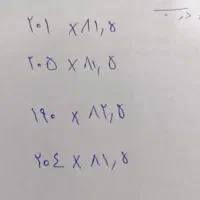 ٢٠١ × ٨١,٥
٢٠٥ × ٨١,٥
١٩٠ × ٨٢,٥
٢٠٤ × ٨١,٥